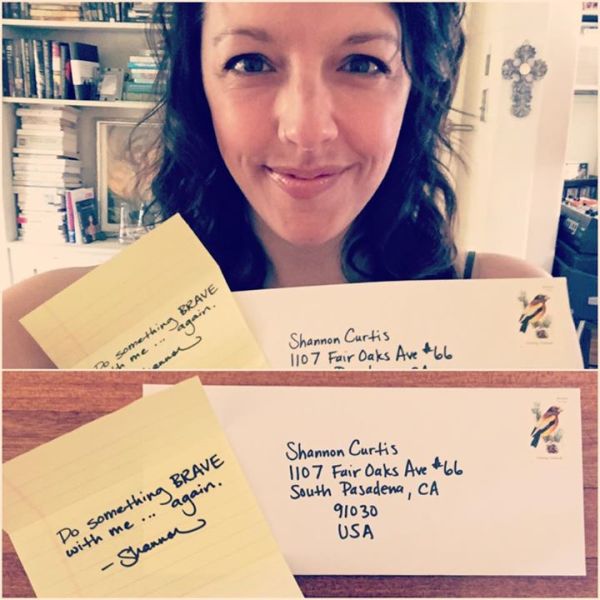 Do something BRAVE
with me... again.
Shannon
Shannon Curtis
1107 Fair Oaks Ave #66
Do something BRAVE
with me... again.
-Shannon
Shannon Curtis
1107 Fair Oaks Ave #66
South Pasadena, CA
91030
USA